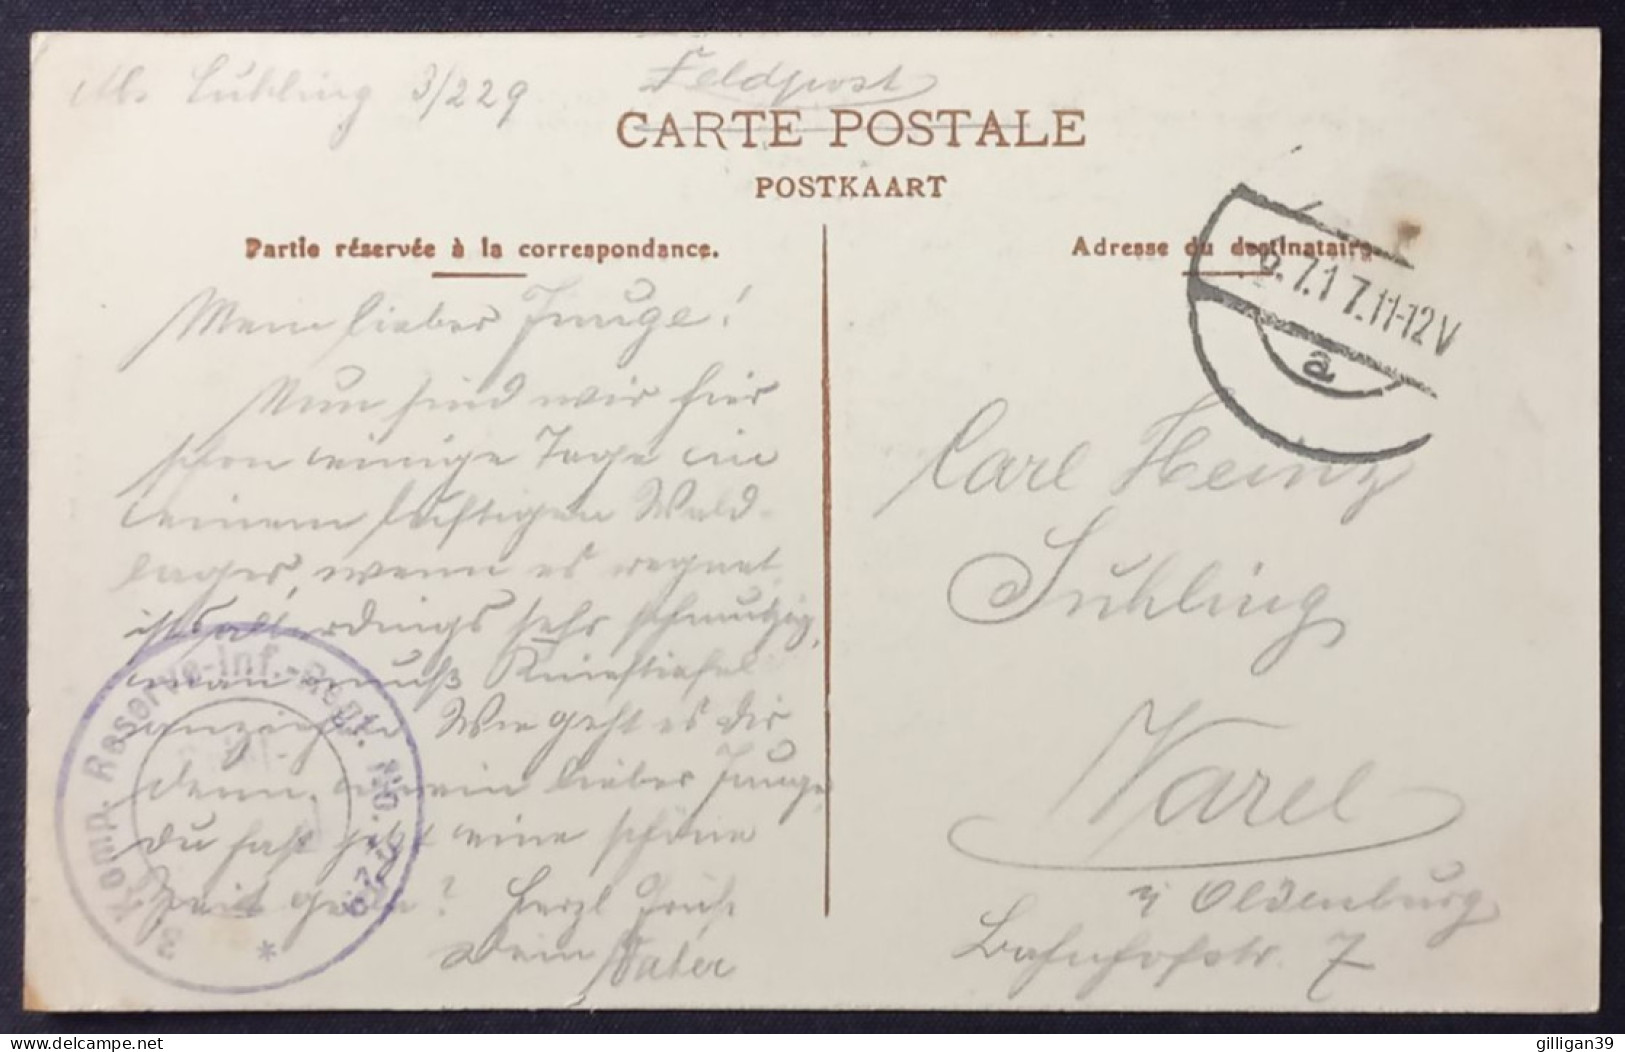 Abs. Suhling 3/229
Feldpost
CARTE POSTALE
POSTKAART
Partie réservée à la correspondance.
Adresse du destinataire
9.7.17.11-12V
a
Mein lieber Junge!
Nun sind wir hier
schon einige Tage in
einem luftigen Wald-
lager, wenn es regnet
ists allerdings sehr schmutzig,
man muß Kniestiefel
anziehen. Wie geht es Dir
denn, mein lieber Junge
du hast jetzt eine schöne
Zeit gehabt? Herzl Gruß
Dein Vater
Carl Heinz
Suhling
Varel
i Oldenburg
Bahnhofstr. 7
3. Komp. Reserve-Inf.-Regt. No. 229
*
delcampe.net
gilligan39